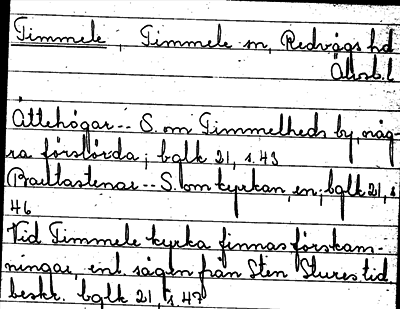 Timmele, Timmele sn, Redvägs hd
Älvsb.l
Ättehögar -- S. om Timmelheds by, någ-
ra förstörda; bglk 21, s. 43
Brautastenar -- S. om kyrkan, en; bglk 21, s
46
Vid Timmele kyrka finnas förskan-
ningar, enl. sägen från Sten Stures tid.
beskr. bglk 21, s. 47